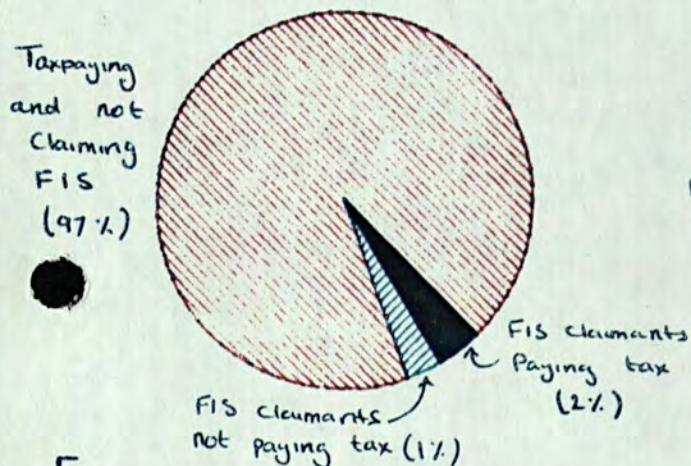 Taxpaying
and not
Claiming
FIS
(97%)
FIS Claimants
Paying tax
(2%)
FIS claimants
not paying tax (1%)